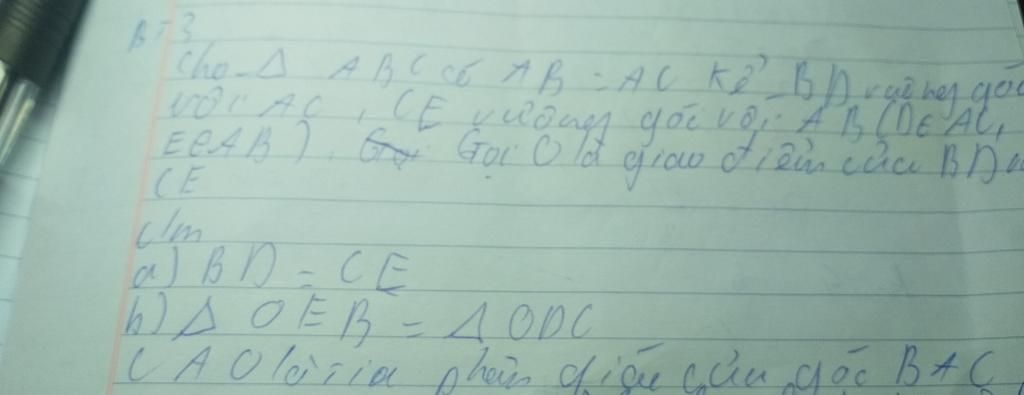 BT3
Cho Δ ABC có AB = AC Kẻ BD vuông góc
với AC, CE vuông góc với AB (D∈AC,
E∈AB). Gọi Gọi O là giao điểm của BD
CE
c/m
a) BD = CE
b) Δ OEB = Δ ODC
C AO là tia phân giác của góc BAC